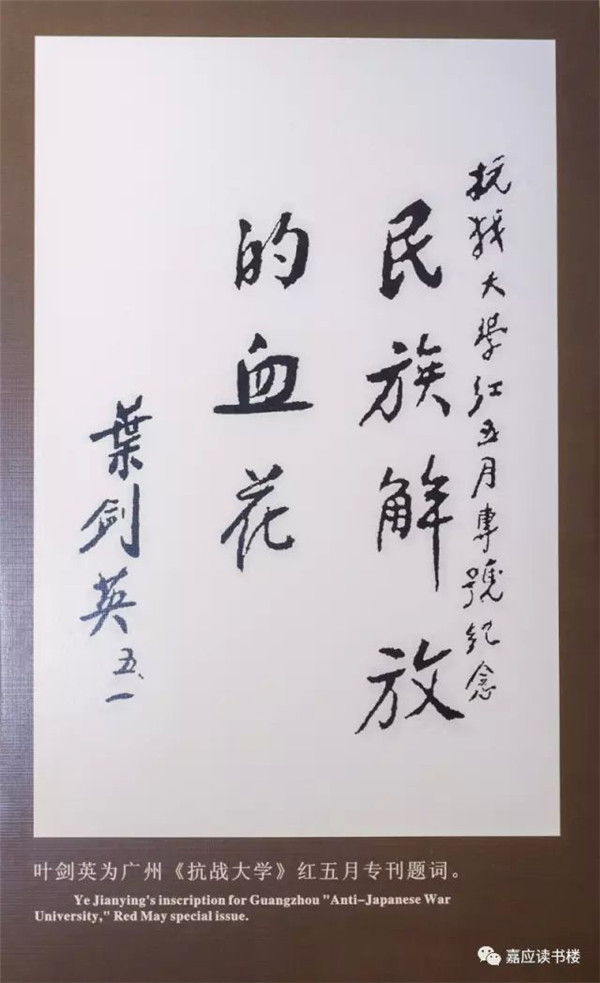 抗战大學红五月專號纪念
民族解放
的血花
葉劍英 五、一
叶剑英为广州《抗战大学》红五月专刊题词。
Ye Jianying's inscription for Guangzhou "Anti-Japanese War
University," Red May special issue.
嘉应读书楼